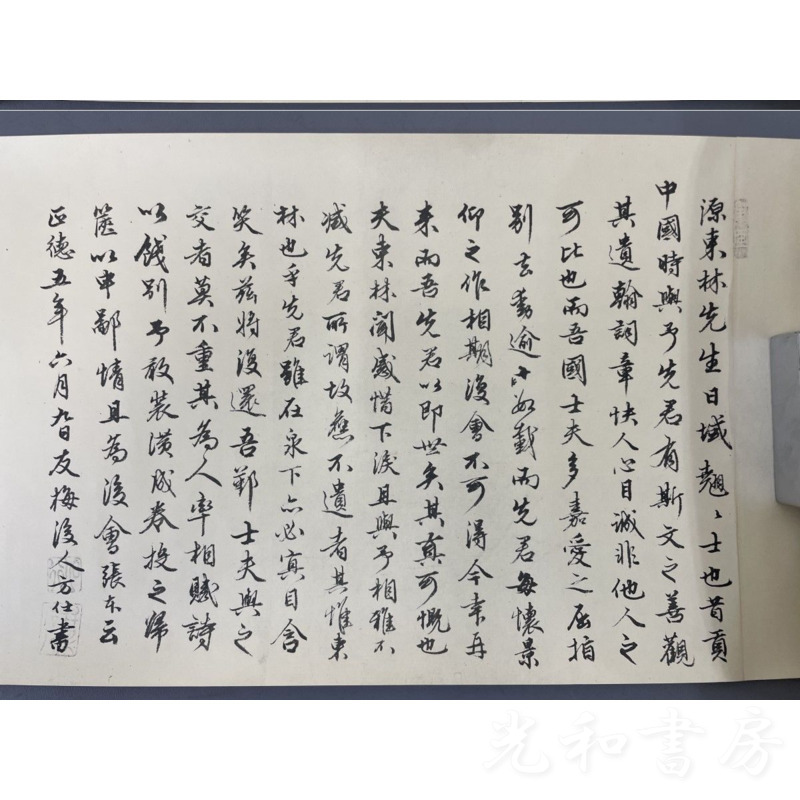 源東林先生日域翹〻士也昔貢
中國時與予先君有斯文之善觀
其遺翰詞章快人心目誠非他人之
可比也而吾國士夫多嘉愛之屈指
別去奄逾十數載而先君每懷景
仰之作相期後會不可得今幸再
來而吾先君以即世矣其真可慨也
夫東林聞感惜下淚且與予相雅不
減先君所謂故舊不遺者其惟東
林也乎先君雖在泉下亦必寘目含
笑矣茲將復還吾鄞士夫與之
交者莫不重其為人率相賦詩
以餞別予敢裝潢成卷投之歸
篋以申鄙情且為後會張本云
正德五年六月九日友梅後人方仕書
光和書房